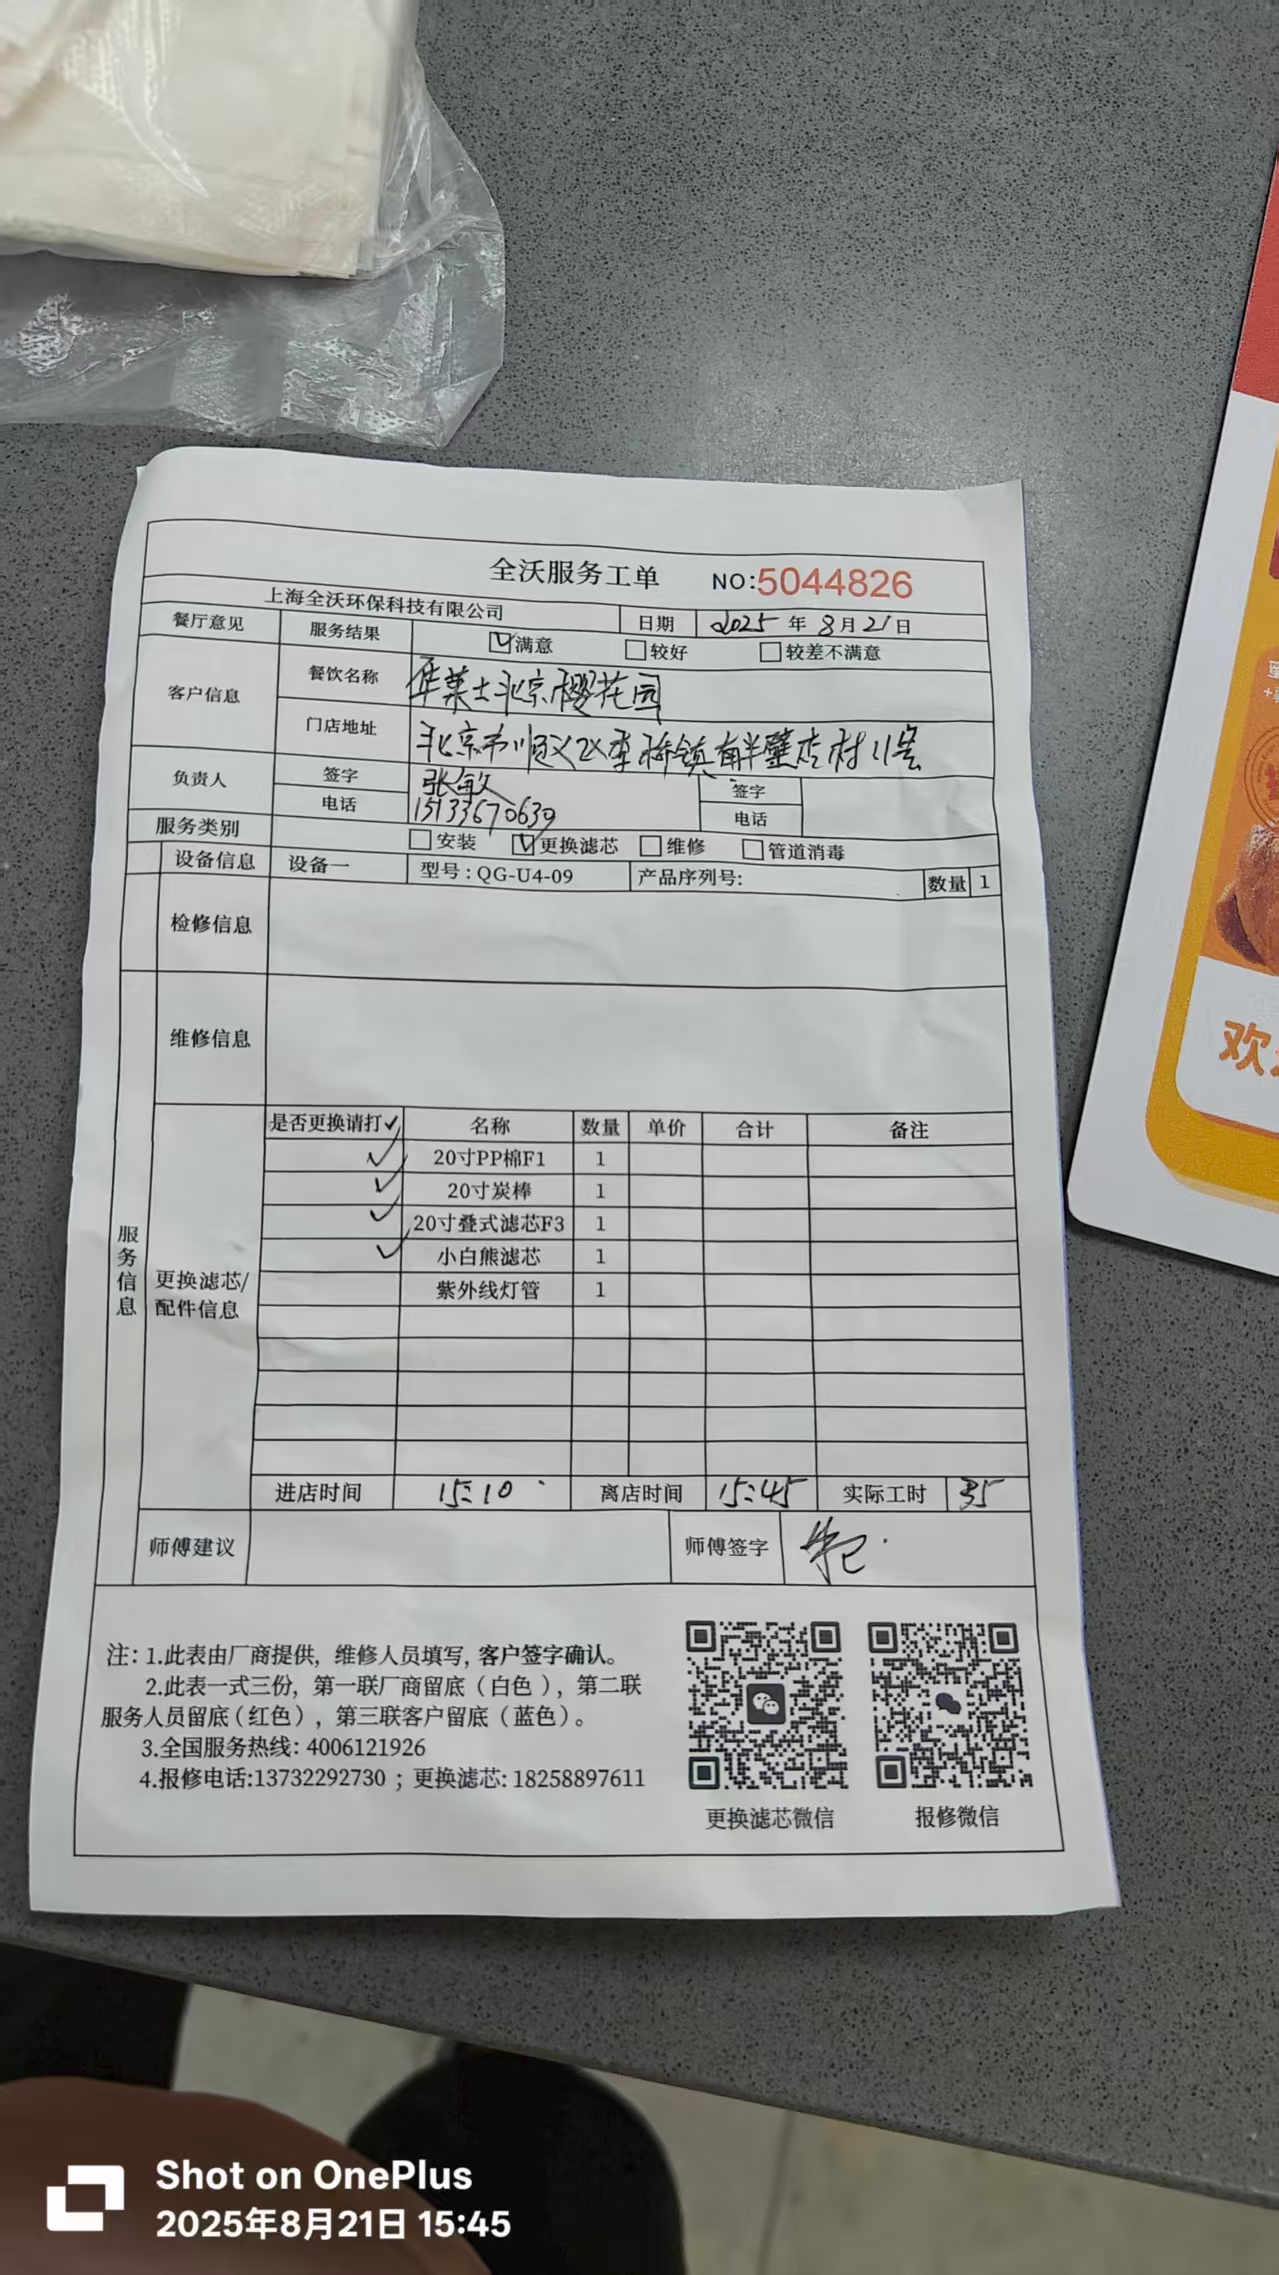 全沃服务工单 NO:5044826
上海全沃环保科技有限公司 日期 2025年8月21日
餐厅意见 服务结果 ☑满意 □较好 □较差不满意
客户信息 餐饮名称 华莱士北京樱花园
门店地址 北京市顺义区李桥镇 半壁店村11号
负责人 签字 张敏 签字
电话 15133670639 电话
服务类别 □安装 ☑更换滤芯 □维修 □管道消毒
设备信息 设备一 型号:QG-U4-09 产品序列号: 数量 1
检修信息
维修信息
服务信息
更换滤芯/配件信息
是否更换请打✓ 名称 数量 单价 合计 备注
✓ 20寸PP棉F1 1
✓ 20寸炭棒 1
✓ 20寸叠式滤芯F3 1
✓ 小白熊滤芯 1
紫外线灯管 1
进店时间 15:10 离店时间 15:45 实际工时 35
师傅建议 师傅签字
注: 1.此表由厂商提供, 维修人员填写, 客户签字确认。
2.此表一式三份, 第一联厂商留底(白色), 第二联
服务人员留底(红色), 第三联客户留底(蓝色)。
3.全国服务热线: 4006121926
4.报修电话:13732292730 ; 更换滤芯: 18258897611
更换滤芯微信 报修微信
欢
Shot on OnePlus
2025年8月21日 15:45